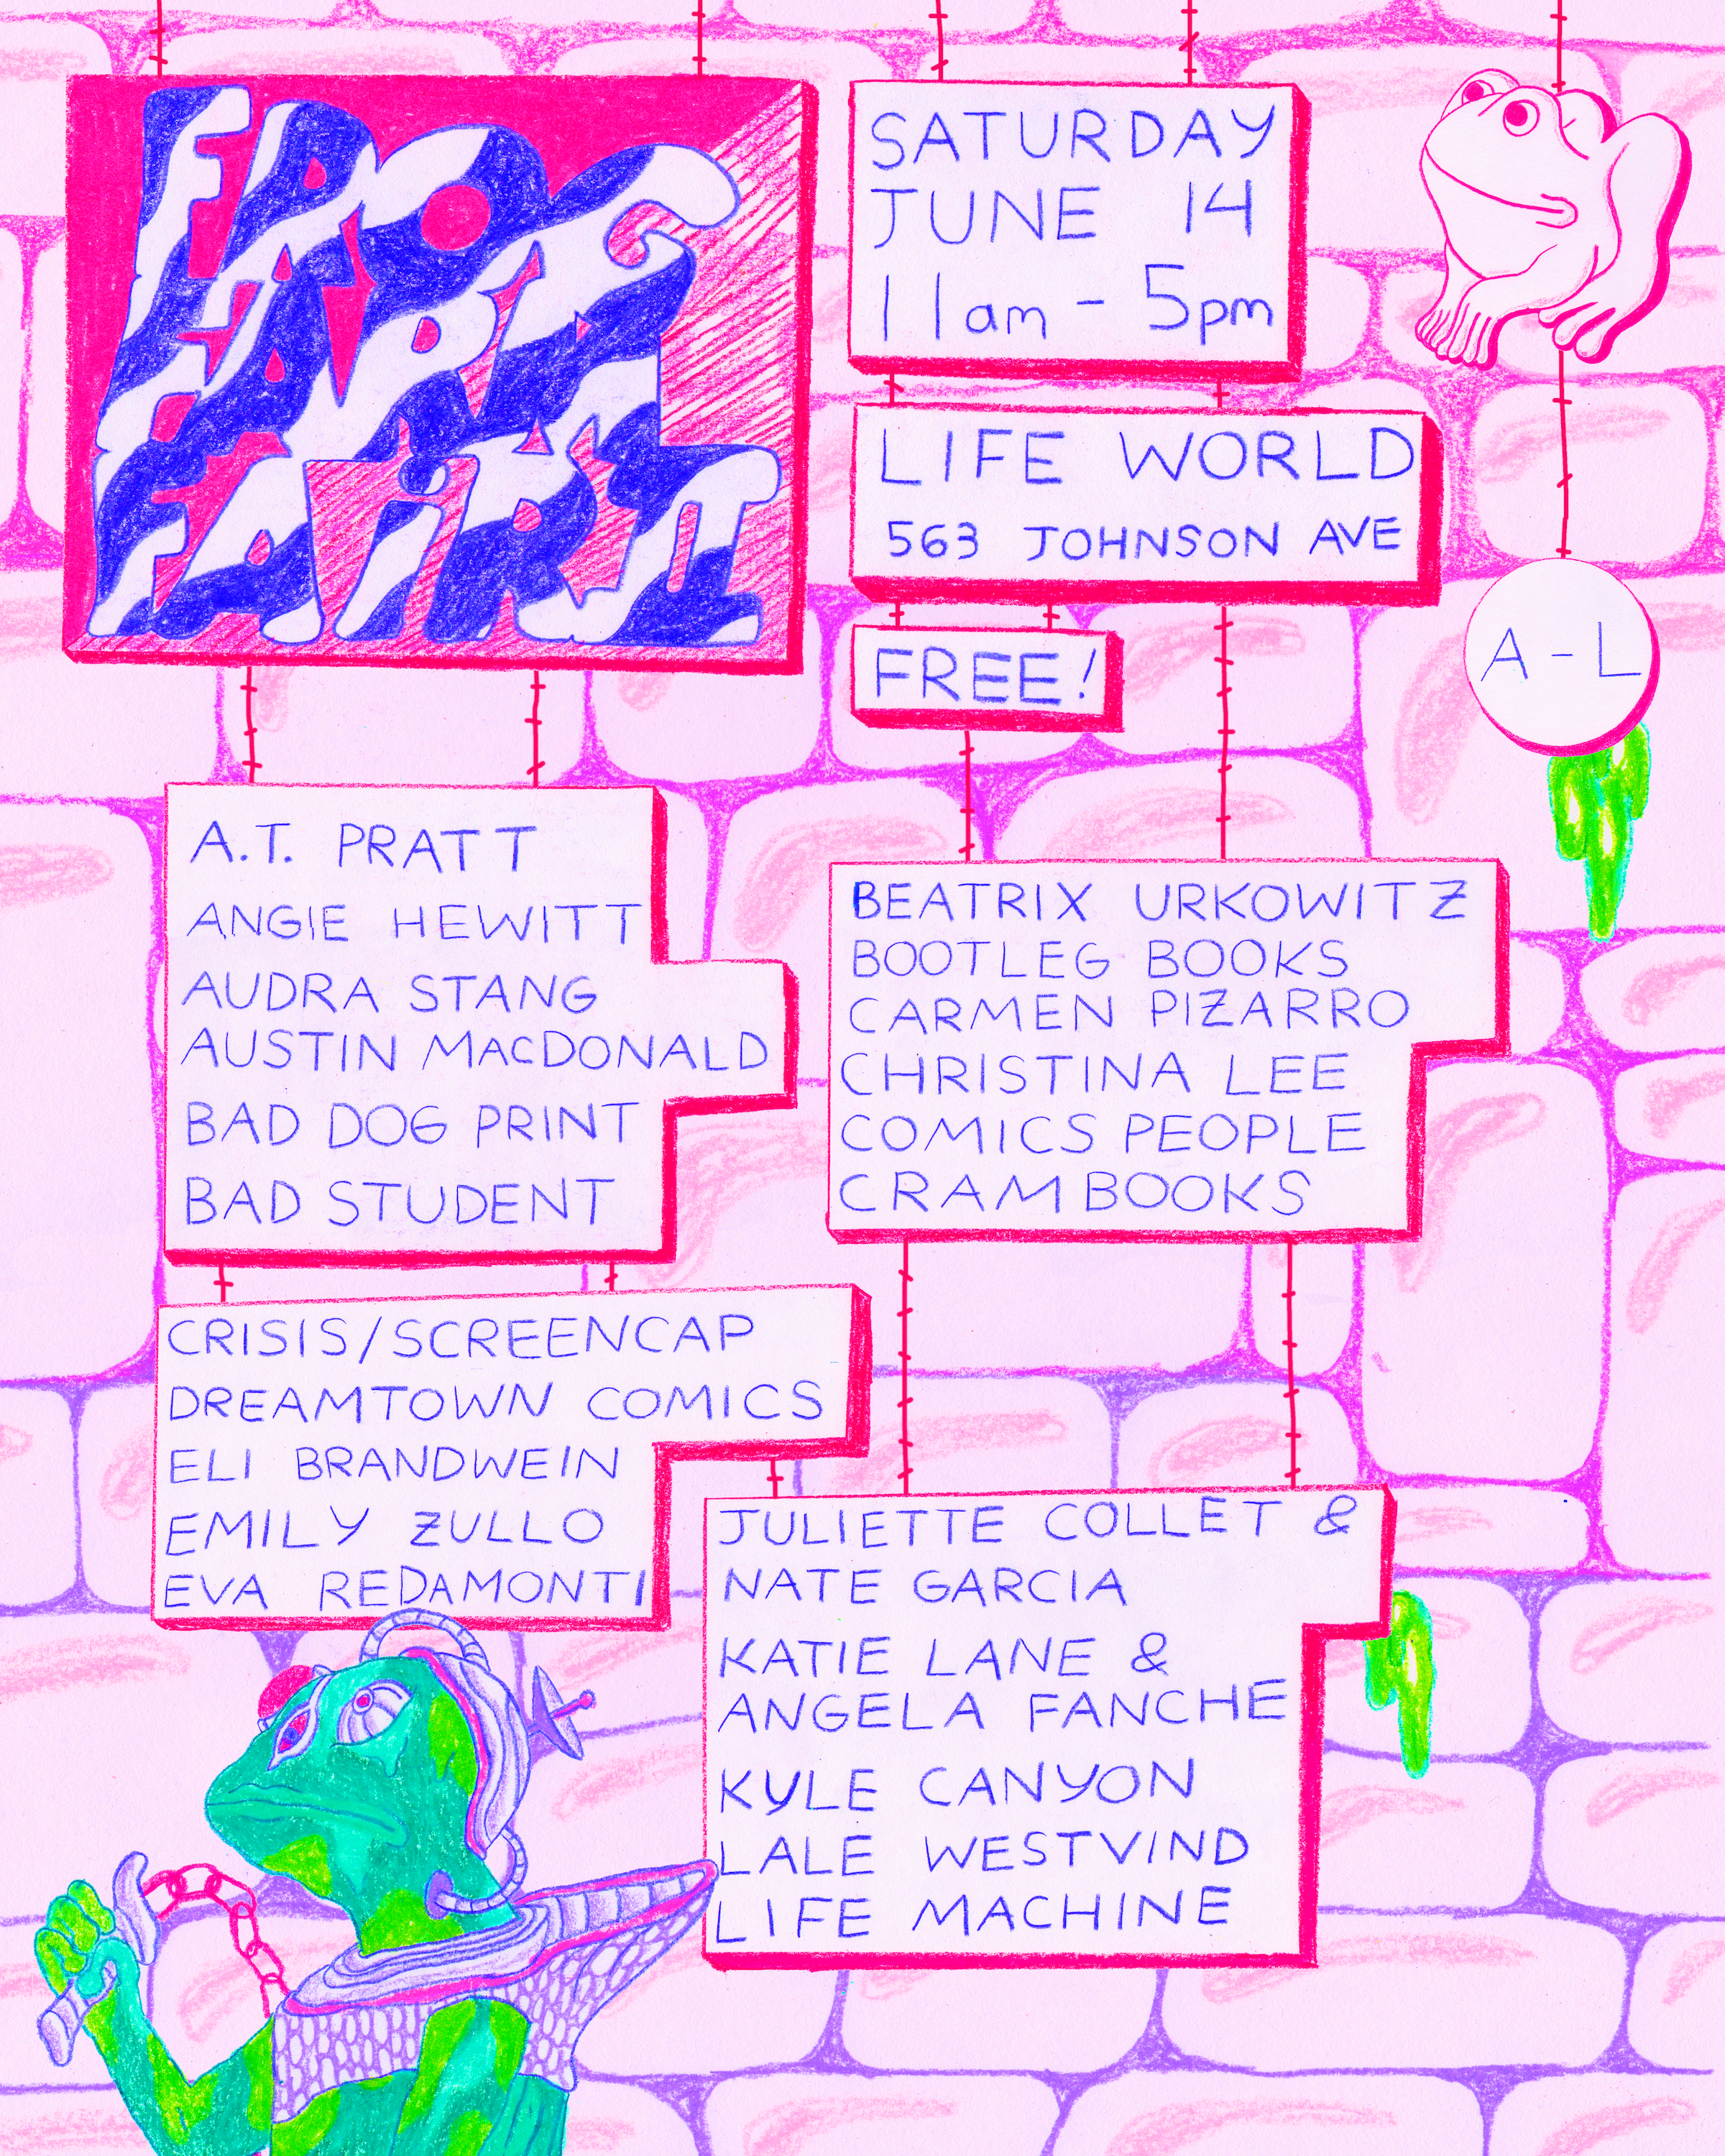 FROG
FARM
FAiR II
SATURDAY
JUNE 14
11am - 5pm
LIFE WORLD
563 JOHNSON AVE
FREE!
A - L
A.T. PRATT
ANGIE HEWITT
AUDRA STANG
AUSTIN MACDONALD
BAD DOG PRINT
BAD STUDENT
BEATRIX URKOWITZ
BOOTLEG BOOKS
CARMEN PIZARRO
CHRISTINA LEE
COMICS PEOPLE
CRAM BOOKS
CRISIS/SCREENCAP
DREAMTOWN COMICS
ELI BRANDWEIN
EMILY ZULLO
EVA REDAMONTI
JULIETTE COLLET &
NATE GARCIA
KATIE LANE &
ANGELA FANCHE
KYLE CANYON
LALE WESTVIND
LIFE MACHINE